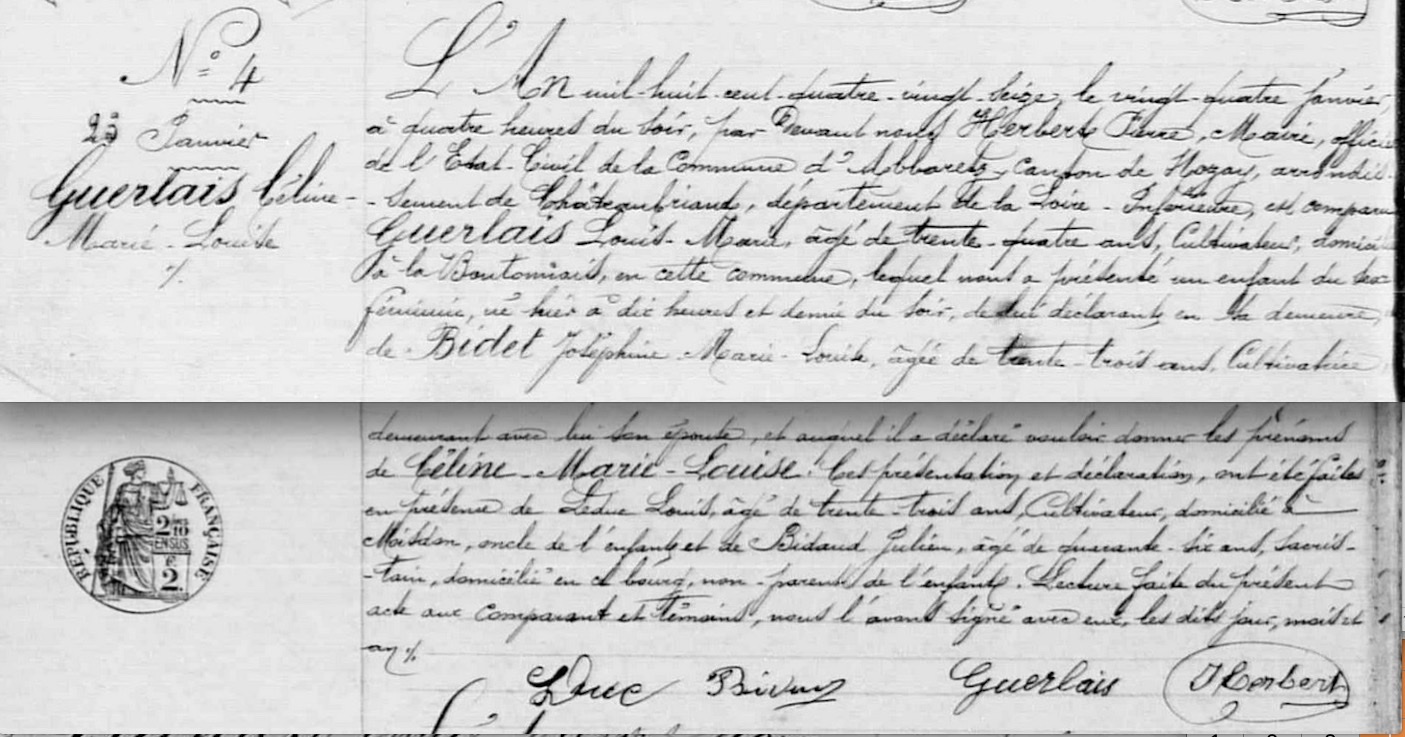 N° 4
23 Janvier
Guerlais Céline-
Marie-Louise
L'An mil-huit-cent-quatre-vingt-seize, le vingt-quatre janvier
à quatre heures du soir, par devant nous Herbert Pierre, Maire, officier
de l'Etat-Civil de la Commune d'Abbaretz, canton de Nozay, arrondis-
-sement de Châteaubriand, département de la Loire-Inférieure, est comparu
Guerlais Louis-Marie, âgé de trente-quatre ans, Cultivateur, domicilié
à la Boutonnais, en cette commune, lequel nous a présenté un enfant du sexe
féminin, né hier à dix heures et demie du soir, de lui déclarant, en sa demeure,
de Bidet Joséphine-Marie-Louise, âgée de trente-trois ans, Cultivatrice
demeurant avec lui son épouse, et auquel il a déclaré vouloir donner les prénoms
de Céline-Marie-Louise. Ces présentation et déclaration, ont été faites
en présence de Leduc Louis, âgé de trente-trois ans, Cultivateur, domicilié à
Moisdon, oncle de l'enfant et de Bidaud Julien, âgé de quarante-six ans, sacris-
-tain, domicilié en ce bourg, non-parent de l'enfant. Lecture faite du présent
acte aux comparant et témoins, nous l'avons signé avec eux, les dits jour, mois et
an
RÉPUBLIQUE FRANÇAISE
2/10
EN SUS
2
Leduc Guerlais Herbert